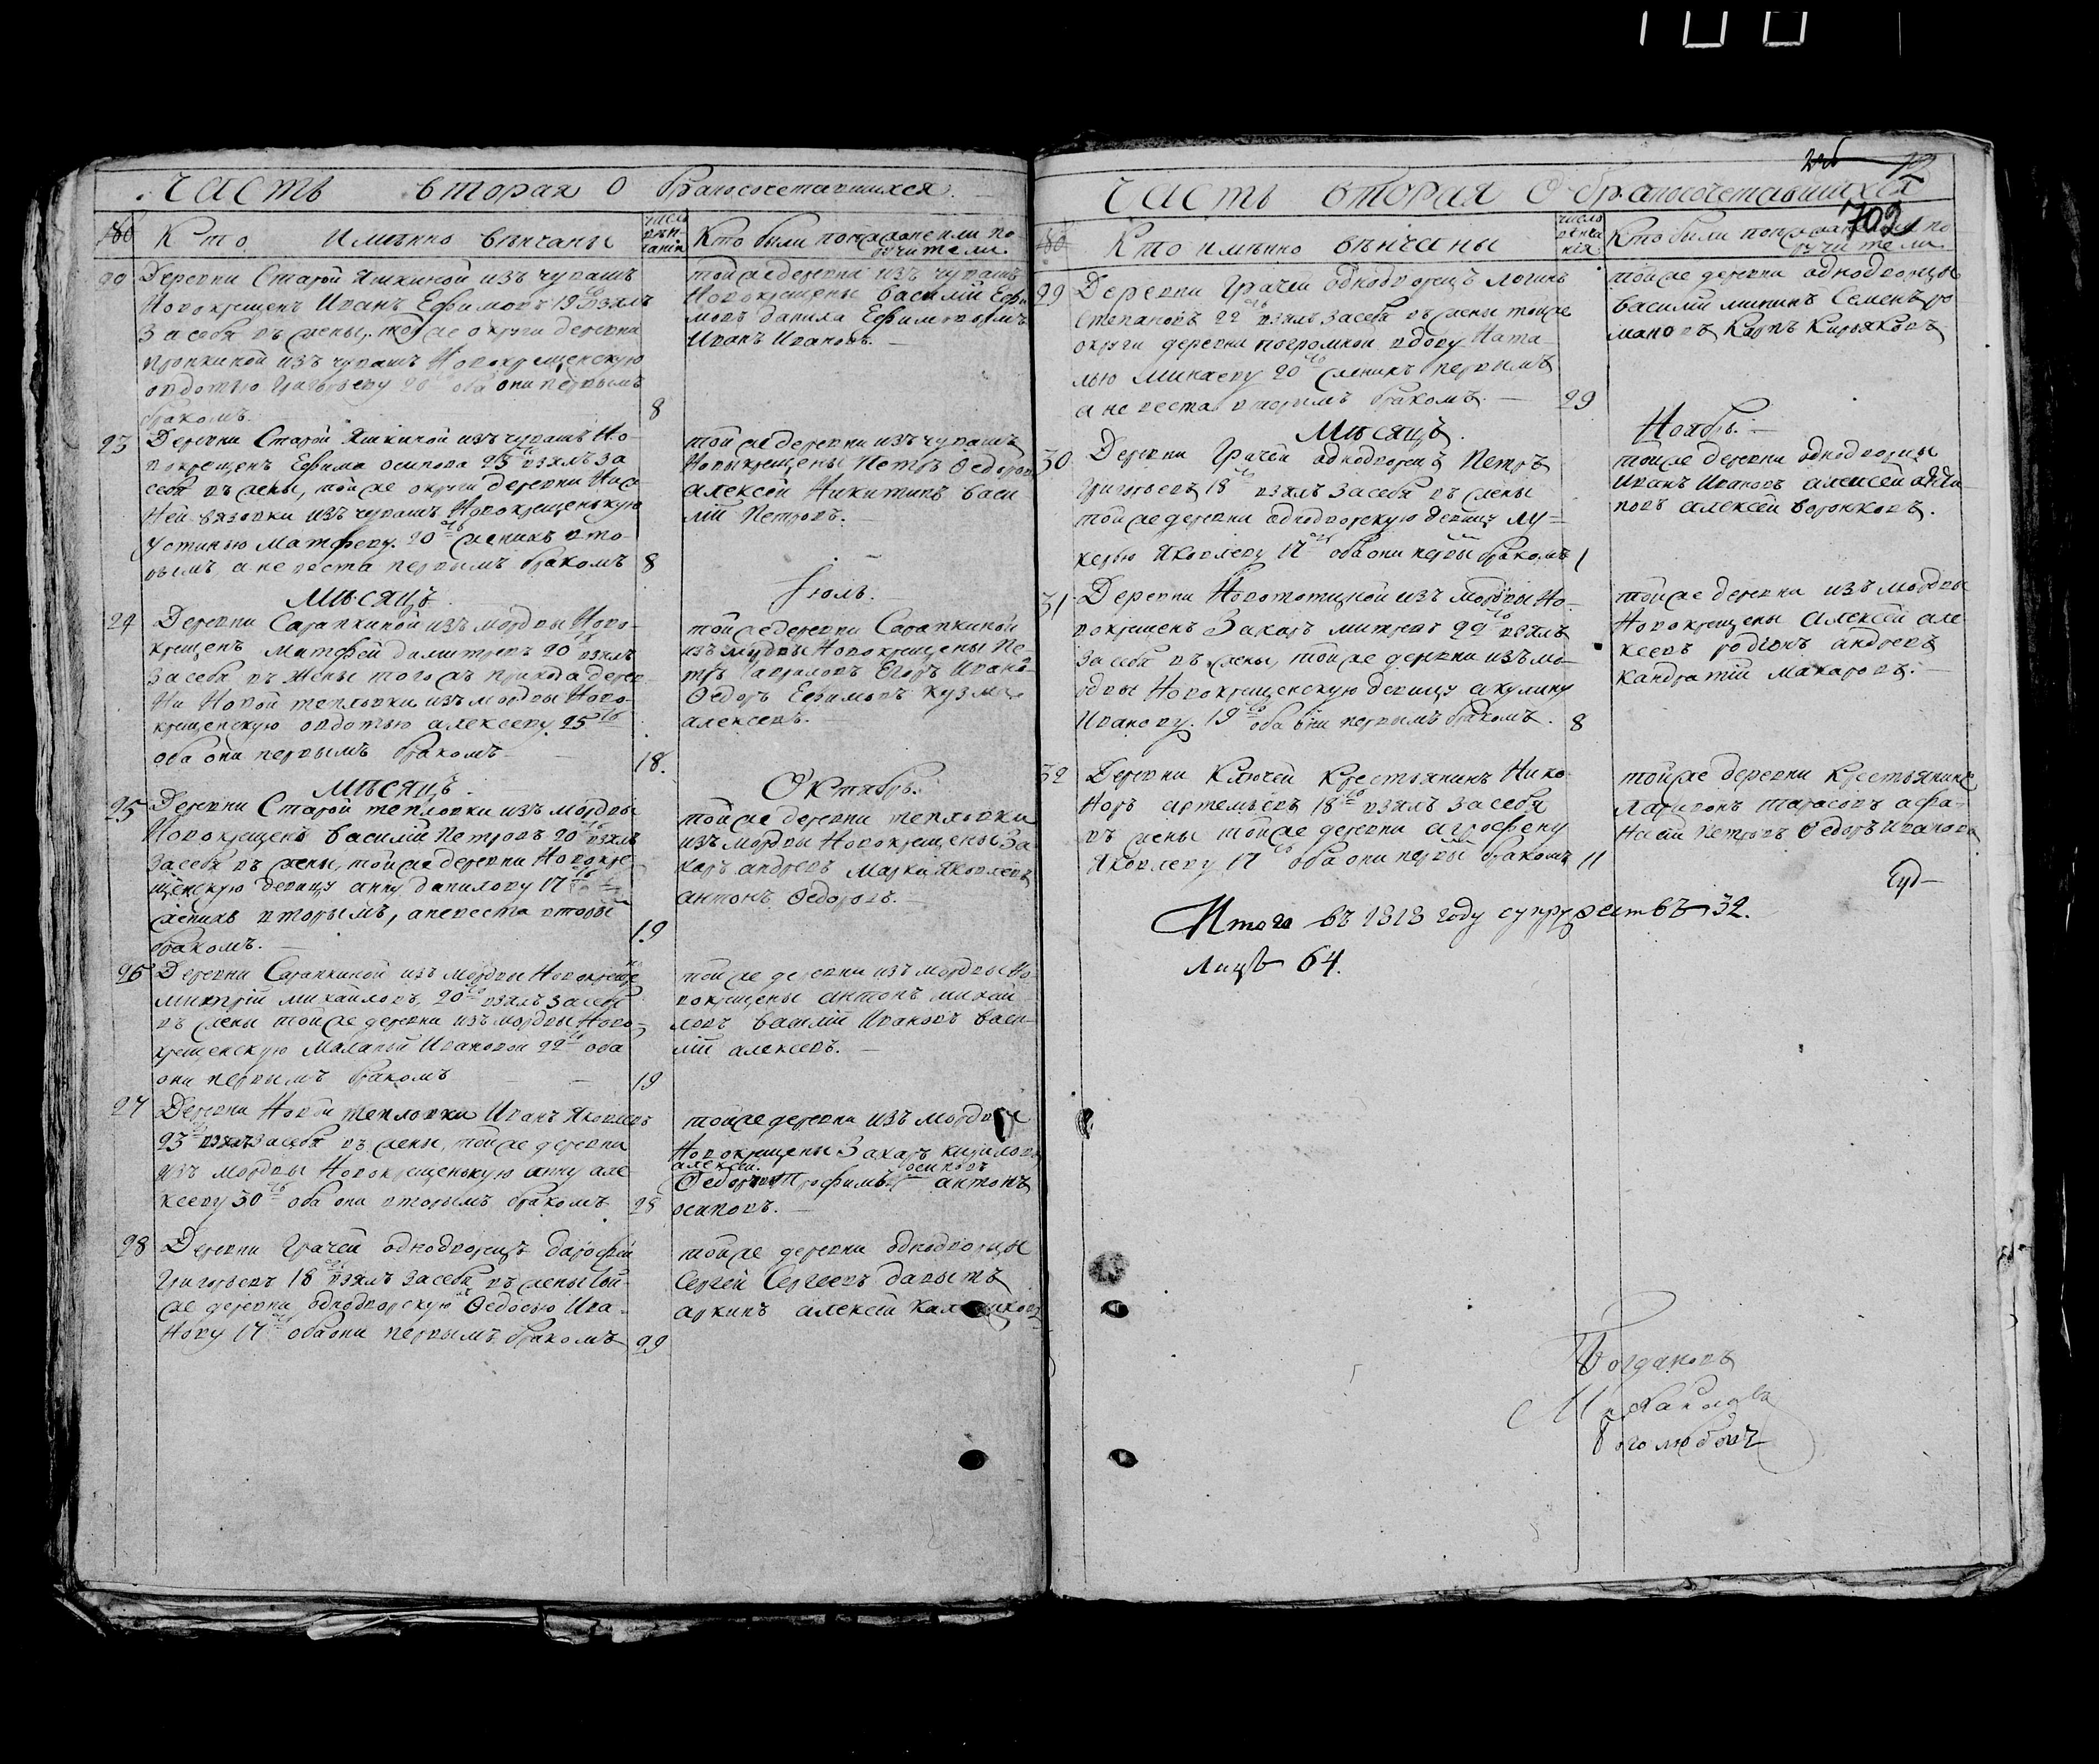 часть вторая о бракосочетавшихся.
Кто имянно венчаны
число вѣнчания
Кто были по поручители
22 Деревни Старой Яшкиной изъ чувашъ
Новокрещенъ Иванъ Ефимовъ 19 взялъ
За себя въ жены, той же округи деревни
изъ чувашъ Новокрещенскую
овдотью Григорьеву 20 оба они первымъ
бракомъ. 8
той же деревни изъ чувашъ
Новокрещены Василий Ефи
мовъ данила Ефимовъ
Иванъ Ивановъ.
23 Деревни Старой Яшкиной изъ чувашъ Но-
вокрещенъ Ефима осипова 25 взялъ за
себя въ жены, той же округи деревни Ниж
ней вязовки изъ чувашъ Новокрещенскую
Устинью Матфеву. 20 женихъ вто-
рымъ, а невеста первымъ бракомъ 8
той же деревни изъ чувашъ
Новыкрещены Петръ Федоровъ
алексей Никитинъ васи
лій Петровъ.
Мѣсяцъ. Іюль.
24 Деревни Сарапкиной изъ мордвы Ново-
крещенъ Матфей димитревъ 20 взялъ
За себя въ жены того жъ прихода дерев
ни Новой тепловки изъ мордвы Ново-
крещенскую овдотью алексеву. 25
оба они первымъ бракомъ 18.
той же деревни Сарапкиной
изъ мордвы Новокрещены Пе-
тръ Гавриловъ Егоръ Ивано
Федоръ Ефимовъ кузма
алексевъ.
Мѣсяцъ. Октябрь.
25 Деревни Старой тепловки изъ мордвы
Новокрещенъ василій Петровъ 20 взялъ
За себя въ жены, той же деревни Новокре
щенскую девицу анну данилову 17
женихъ вторымъ, а невеста вторы
бракомъ. 19
той же деревни тепловки
изъ мордвы Новокрещены За
харъ андревъ Марки Яковлевъ
антонъ Федоровъ.
26 Деревни Сарапкиной изъ мордвы Новокреще
митрій михайловъ, 20 взялъ за себя
въ жены той же деревни изъ мордвы Ново-
крещенскую Маланьи Ивановой 22 оба
они первымъ бракомъ 19
той же деревни изъ мордвы Но-
вокрещены антонъ михай
ловъ василій Ивановъ васи-
лій алексевъ.
27 Деревни Новой тепловки Иванъ Яковлевъ
23 взялъ за себя въ жены, той же деревни
изъ мордвы Новокрещенскую анну але
ксеву 30 оба они вторымъ бракомъ 28
той же деревни изъ мордвы
Новокрещены Захаръ кириловъ
алексеи. осиповъ
Федоръ Трофимъ антонъ
осиповъ.
28 Деревни Грачей однодворецъ дарофей
Григорьевъ 18 взялъ за себя въ жены той-
же деревни, однодворскую Федосью Ива-
нову 17 оба они первымъ бракомъ 29
той же деревни однодворцы
Сергей Сергеевъ давыдъ
аркинъ алексей
226 12
702
часть вторая о бракосочетавшихся
Кто имѣнно вѣнчаны
число вѣнчания
Кто были по поручители
29 Деревни Грачей однодворецъ логинъ
Степановъ 22 взялъ за себя въ жены той же
округи деревни погромной вдову Ната-
лью Минаеву 20 женихъ первымъ
а невеста вторымъ бракомъ. 29
той же деревни однодворцы
василий мининъ Семенъ ро
мановъ Карпъ Кирьяковъ
Мѣсяцъ. Ноябрь.
30 Деревни Грачей однодворецъ Петръ
Григорьевъ 18 взялъ за себя въ жены
той же деревни однодворскую девицу лу-
керью Яковлеву 17 оба они первы бракомъ 1
той же деревни однодворцы
Иванъ Ивановъ алексей
алексей воронковъ.
31 Деревни Новотоцкой изъ мордвы Но-
вокрещенъ Захаръ митревъ 22 взялъ
за себя въ жены, той же деревни изъ мо-
рдвы Новокрещенскую девицу акулину
Иванову. 19 оба они первымъ бракомъ. 8
той же деревни изъ мордвы
Новокрещены Алексей але
ксевъ родіонъ андревъ
кандратий макаровъ.
32 Деревни Ключей Крестьянинъ Нико
норъ артемьевъ 18 взялъ за себя
въ жены той же деревни агрофену
Яковлеву 17 оба они первы бракомъ 11
той же деревни крестьяния
Ларивонъ тарасовъ афа-
насий Петровъ Федоръ Иванова
Итого въ 1813 году супружествъ 32.
Лицъ 64.
Богдановъ
Михайлова
Боголюбовъ